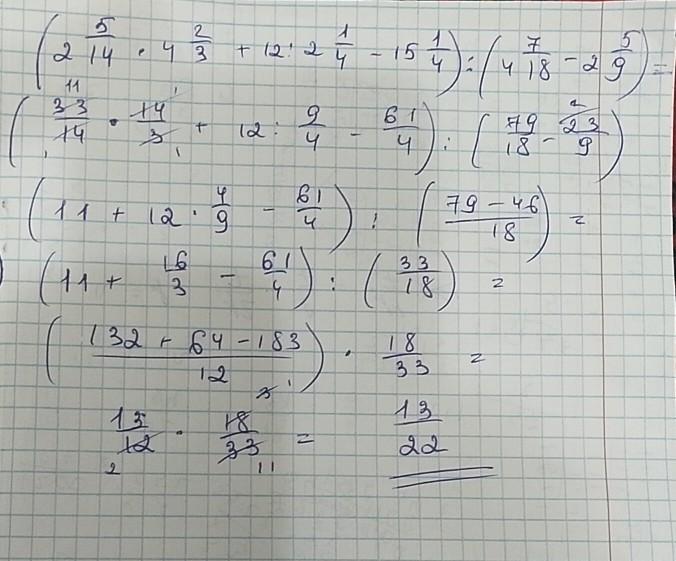 (2 5/14 · 4 2/3 + 12 : 2 1/4 - 15 1/4) : (4 7/18 - 2 5/9) =
(33/14 · 14/3 + 12 : 9/4 - 61/4) : (79/18 - 23/9)
: (11 + 12 · 4/9 - 61/4) : (79 - 46/18) =
) (11 + 16/3 - 61/4) : (33/18) =
(132 + 64 - 183/12) · 18/33 =
13/12 · 18/33 = 13/22